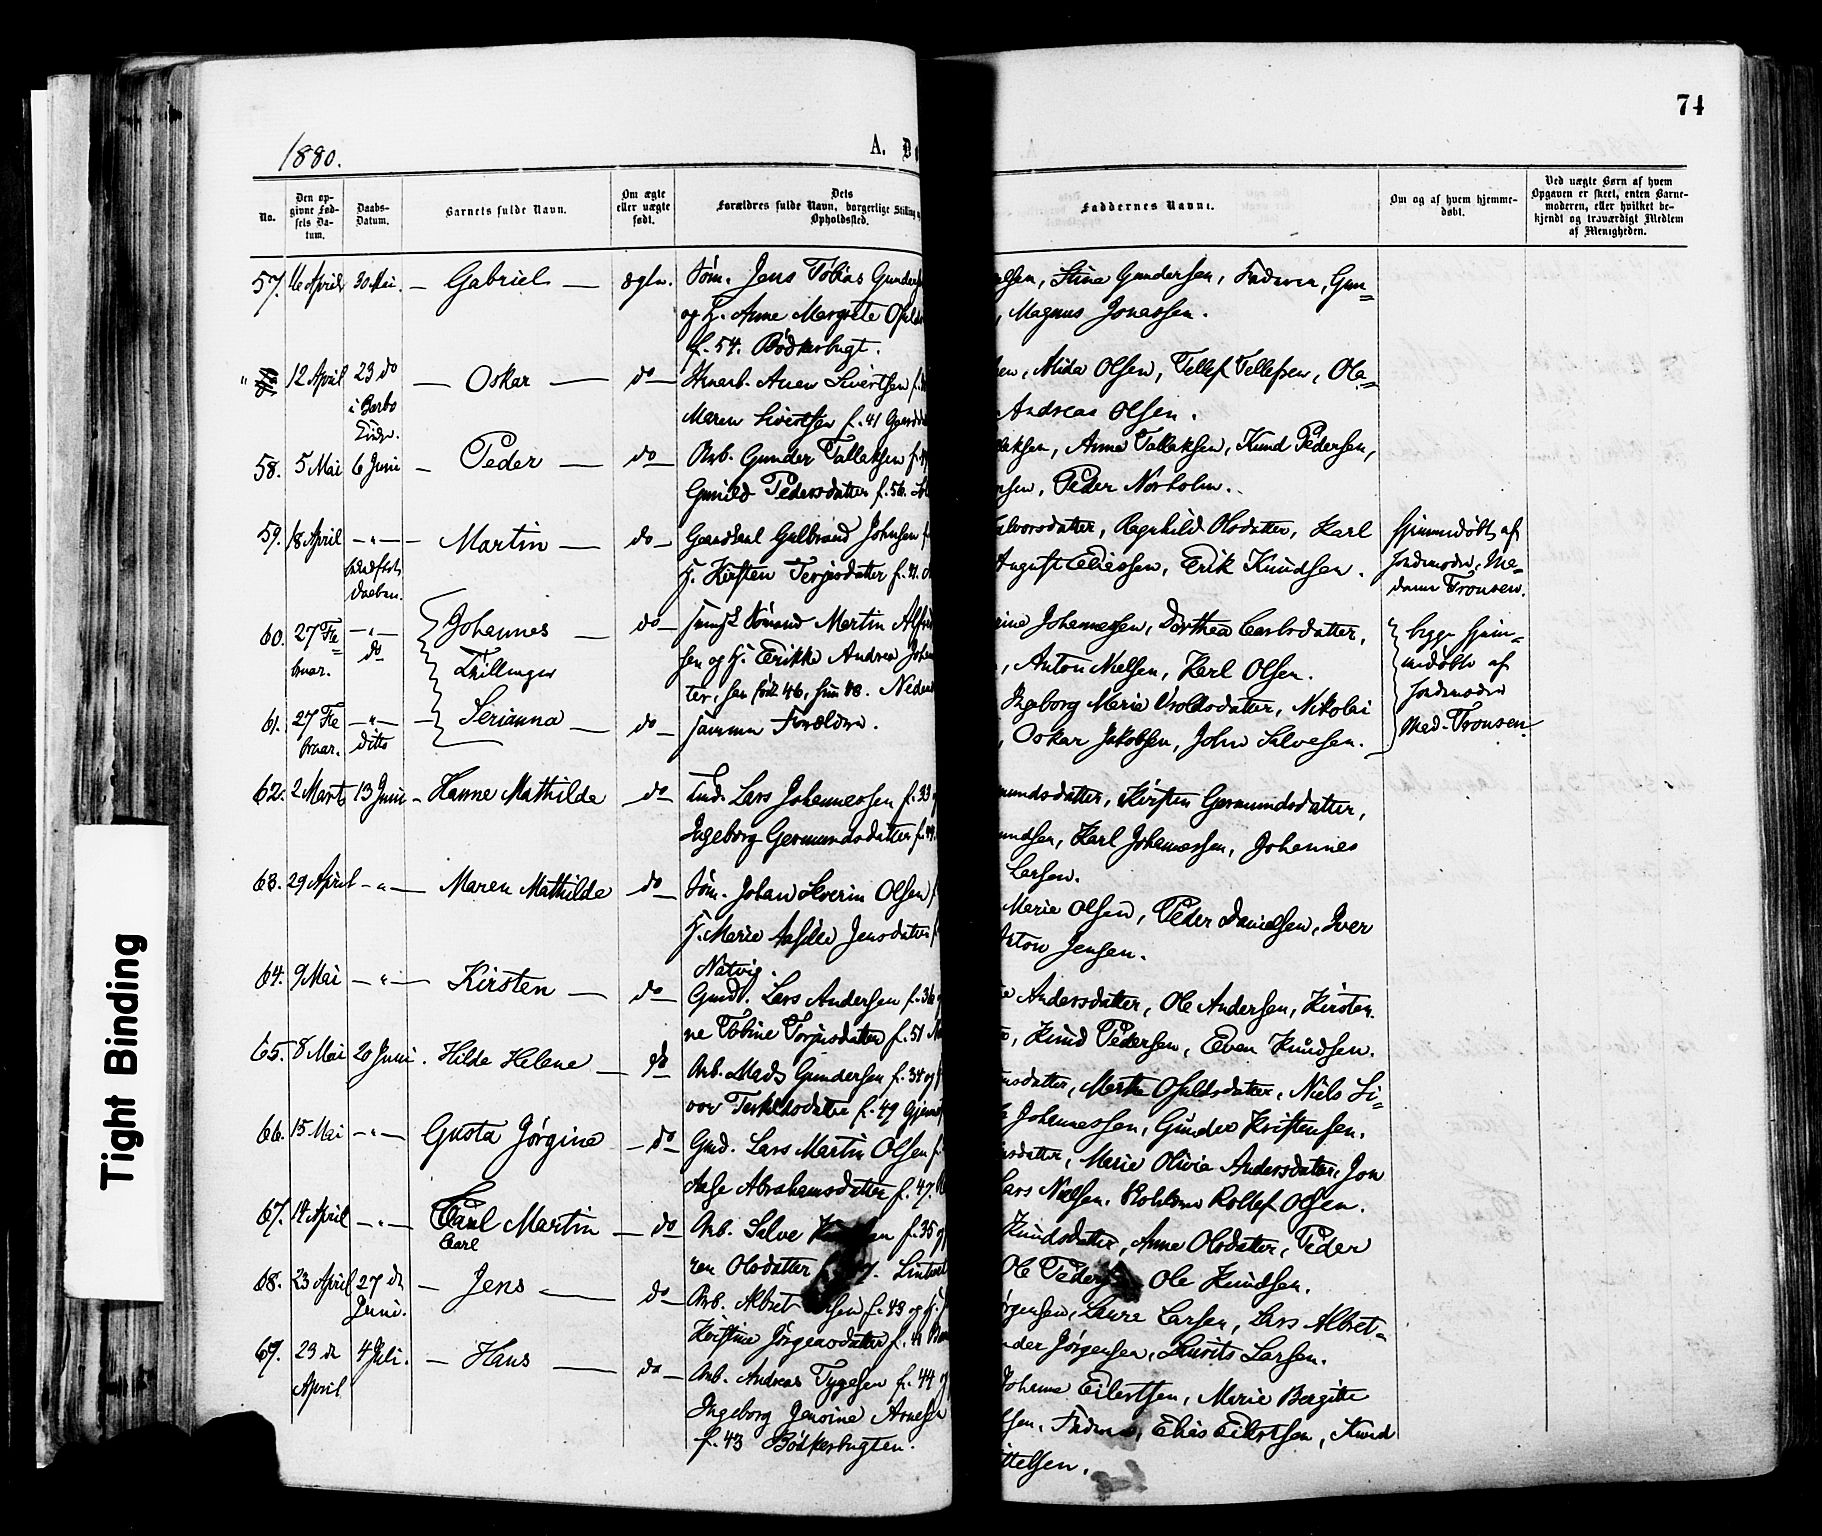 74
1880.
A. D
No.
Den op-
givne Fød-
sels Da-
tum.
Daabs-
Datum.
Barnets fulde Navn.
Om ægte
eller uægte
født.
Dets
Forældres fulde Navn, borgerlige Stilling
Opholdssted.
Faddernes Navne.
Om og af hvem hjemme-
døbt.
Ved uægte Børn af hvem
Opgaven er skeet, enten Barne-
moderen, eller hvilket be-
kjendt og troværdigt Medlem
af Menigheden.
57. 16 April 30 Mai. — Gabriel — ægte. Søm. Jens Tobias Gunders
og H. Anne Margrete Osulds
f. 54. Bødkerbugt.
sen, Stine Gundersen, Faderen, Gun=
, Magnus Jonassen.
" 12 April 23 do — Oskar — do — Sivertsen f.
i Barbo
Kirke.
Maren Sivertsen f. 41
en, Alida Olsen, Tellef Tellefsen, Ola=
Andreas Olsen.
58. 5 Mai 6 Juni — Peder — do — Arb. Gunder Tallaksen f.
Gunild Pedersdatter f. 56.
laksen, Anne Tallaksen, Knud Pedersen,
sen, Peder Norholm.
59. 18 April — " — Martin — do — Gulbrand Johnsen f.
H. Kirsten Terjesdatter f. 41.
alvorsdatter, Ragnhild Olsdatter, Karl
August Eliessen, Erik Knudsen.
Hjemmedøbt af
Jordmoder, Ma-
dame Tronsen.
60. 27 Fe= — " — Johannes — do — Martin Alfred
bruar. do Tvillinger
sen og H. Erikke Andrea Johan
ter, han født 46, hun 48.
ine Johannessen, Dorthea Carlsdatter,
, Anton Nielsen, Karl Olsen.
begge hjem=
medøbte af
Jordmoder
Mad. Tronsen.
61. 27 Fe — " — Serianna — do — samme Forældre.
bruar. ditto
Ingeborg Marie Oroldsdatter, Nikolai
, Oskar Jakobsen, John Salvesen.
62. 2 Marts 13 Juni — Hanne Mathilde — do — Lars Johannessen f. 33
Ingeborg Germundsdatter f. 44.
mundsdatter, Kirsten Germundsdatter,
undsen, Karl Johannessen, Johannes
Larsen.
63. 29 April — " — Maren Mathilde do — Søm. Johan Severin Olsen f.
H. Marie Jensdatter f.
Natvig.
Marie Olsen, Peder Danielsen, Iver
Anton Jensen.
64. 9 Mai — " — Kirsten — do — Gmd. Lars Andersen f. 36
ne Tobine Torjusdatter f. 51
e Andersdatter, Ole Andersen, Kirsten
, Knud Pedersen, Even Knudsen.
65. 8 Mai 20 Juni. Hilda Helene — do Arb. Mads Gundersen f. 34 og
vor Terkelsdatter f. 49
nsdatter, Marthe Osuldsdatter, Niels Si=
Johannessen, Gunder Kristensen.
66. 15 Mai — " — Gusta Jørgine — do — Gmd. Lars Martin Olsen f.
Aase Abrahamsdatter f. 47.
sdatter, Marie Olivia Andersdatter, Jon
Lars Nielsen, Rollef Olsen.
67. 14 April — " — Carl Martin — do Arb. Salve f. 35
Carl
ren Olsdatter
Knudsdatter, Anne Olsdatter, Peder
Ole Ole Knudsen.
68. 23 April 27 de — Jens — do — Arb. Albret f. 43 og H.
Juni.
Kirstine Jørgensdatter f. 41
ørgensen, Laura Larsen, Lars Albret=
nder Jørgensen, Laurits Larsen.
69. 23 de 4 Juli. — Hans — do — Arb. Andreas Tygesen f. 44
April
Ingeborg Jensine Arnesen
f. 43 Bødkerbugten.
Johanne Eilertsen, Marie Bergitte
sen, Faderen, Elias Eilertsen, Knud
ttelsen.
Tight Binding